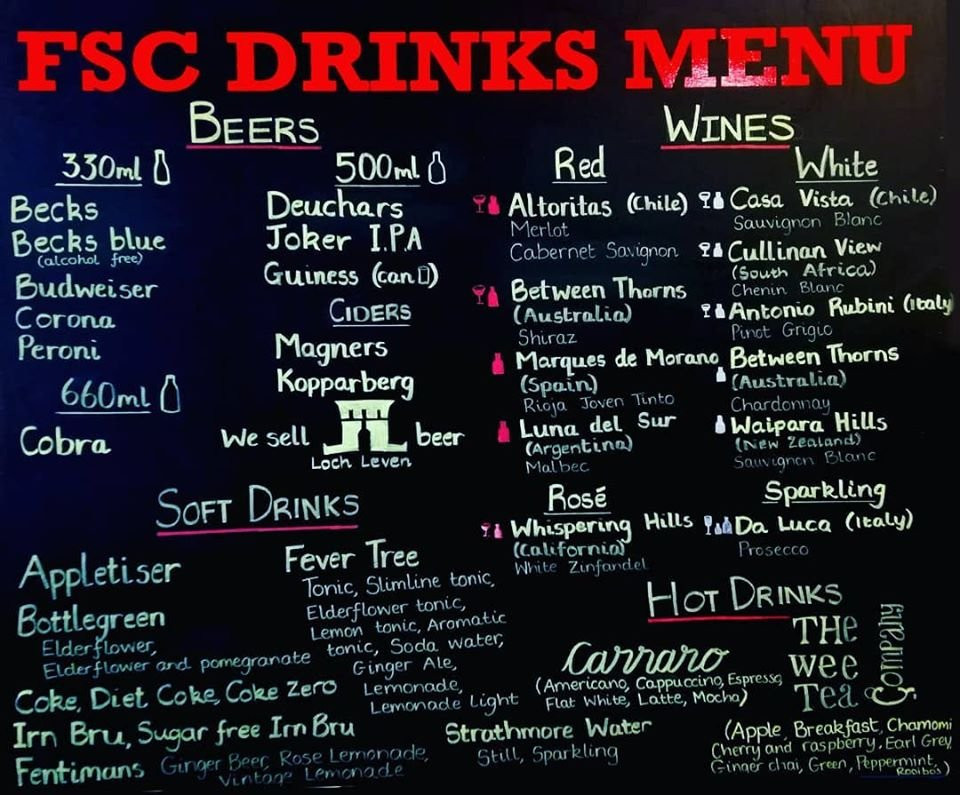 FSC DRINKS MENU
BEERS
330ml
Becks
Becks blue
(alcohol free)
Budweiser
Corona
Peroni
660ml
Cobra
500ml
Deuchars
Joker I.P.A
Guiness (can)
CIDERS
Magners
Kopparberg
We sell beer
Loch Leven
WINES
Red
Altoritas (Chile)
Merlot
Cabernet Savignon
Between Thorns
(Australia)
Shiraz
Marques de Morano
(Spain)
Rioja Joven Tinto
Luna del Sur
(Argentina)
Malbec
White
Casa Vista (Chile)
Sauvignon Blanc
Cullinan View
(South Africa)
Chenin Blanc
Antonio Rubini (Italy)
Pinot Grigio
Between Thorns
(Australia)
Chardonnay
Waipara Hills
(New Zealand)
Sauvignon Blanc
Rosé
Whispering Hills
(California)
White Zinfandel
Sparkling
Da Luca (Italy)
Prosecco
SOFT DRINKS
Appletiser
Bottlegreen
Elderflower,
Elderflower and pomegranate
Coke, Diet Coke, Coke Zero
Irn Bru, Sugar free Irn Bru
Fentimans Ginger Beer, Rose Lemonade,
Vintage Lemonade
Fever Tree
Tonic, Slimline tonic,
Elderflower tonic,
Lemon tonic, Aromatic
tonic, Soda water,
Ginger Ale,
Lemonade,
Lemonade Light
Strathmore Water
Still, Sparkling
HOT DRINKS
Carraro
(Americano, Cappuccino, Espresso,
Flat White, Latte, Mocha)
THe
wee
Tea
Company
(Apple, Breakfast, Chamomi
Cherry and raspberry, Earl Grey
Ginger chai, Green, Peppermint,
Rooibos)